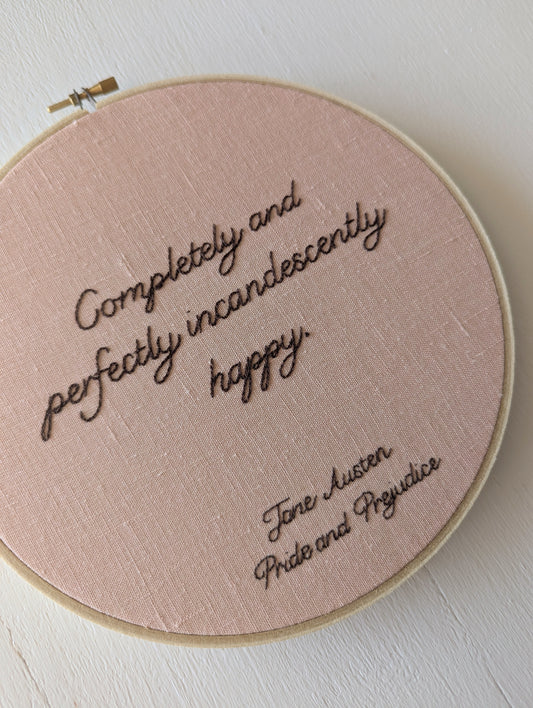 Completely and
perfectly incandescently
happy.
Jane Austen
Pride and Prejudice